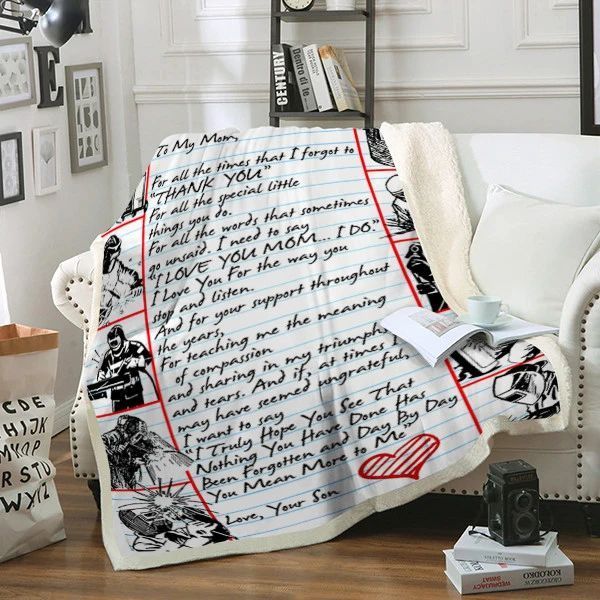 CENTURY
Dentro di te
To My Mom,
For all the times that I forgot to
"THANK YOU"
For all the special little
things you do.
For all the words that sometimes
go unsaid. I need to say
"I LOVE YOU MOM... I DO."
I Love You For the way you
stop and listen.
And for your support throughout
the years,
For teaching me the meaning
of compassion
and sharing in my triumphs
and tears. And if, at times I
may have seemed ungrateful,
I want to say
"I Truly Hope You See That
Nothing You Have Done Has
Been Forgotten and Day By Day
You Mean More to Me"
Love, Your Son
E
CDE
HIJK
MNOP
RSTU
WXYZ
KOLODKO
WĘDRUJĄCY ŚWIAT